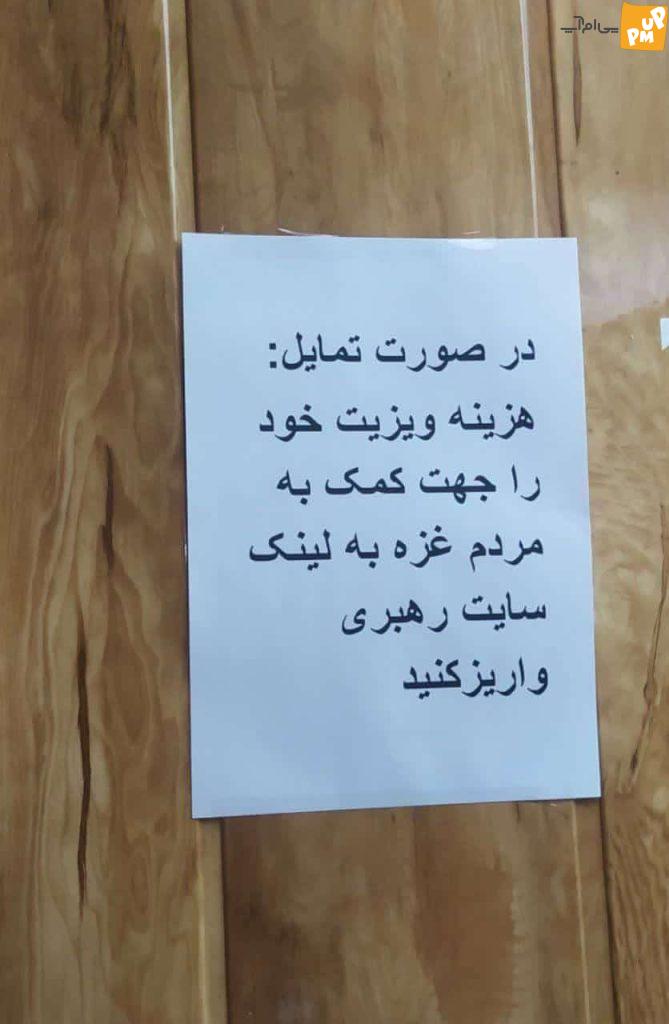 پی‌ام‌آپ
PMUP
در صورت تمایل:
هزینه ویزیت خود
را جهت کمک به
مردم غزه به لینک
سایت رهبری
واریزکنید